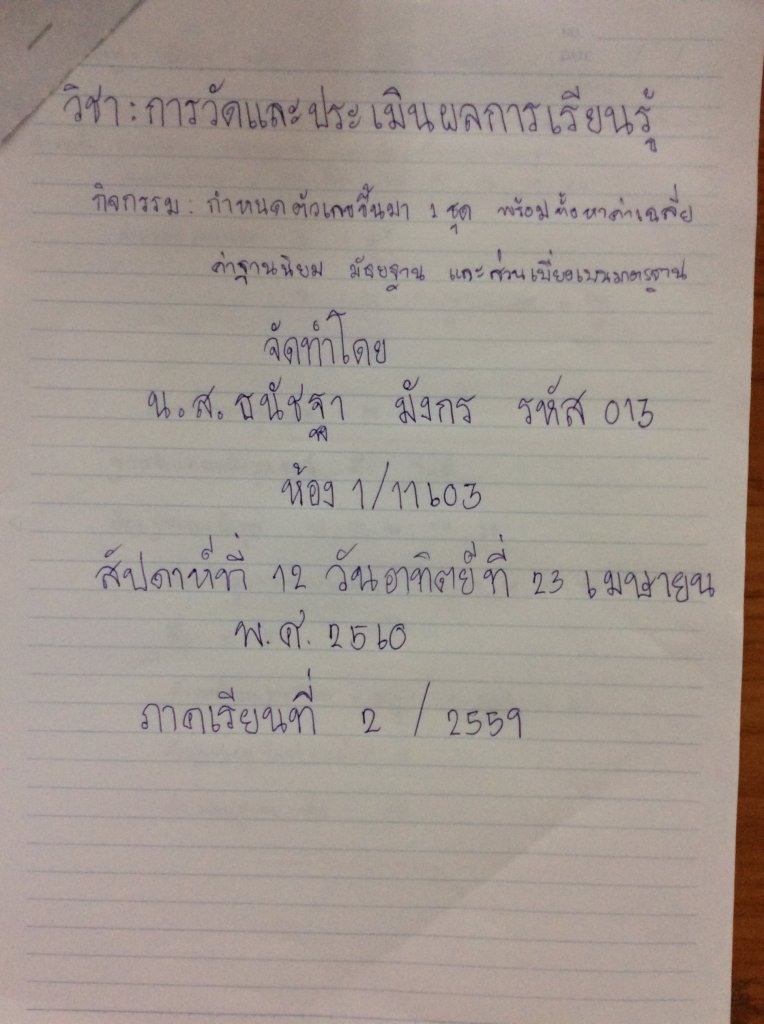 วิชา : การวัดและประเมินผลการเรียนรู้
กิจกรรม : กำหนดตัวเลขขึ้นมา 1 ชุด พร้อมทั้งหาค่าเฉลี่ย
ค่าฐานนิยม มัธยฐาน และส่วนเบี่ยงเบนมาตรฐาน
จัดทำโดย
น.ส. ธนัชฐา มังกร รหัส 013
ห้อง 1/11603
สัปดาห์ที่ 12 วันอาทิตย์ที่ 23 เมษายน
พ.ศ. 2560
ภาคเรียนที่ 2 / 2559